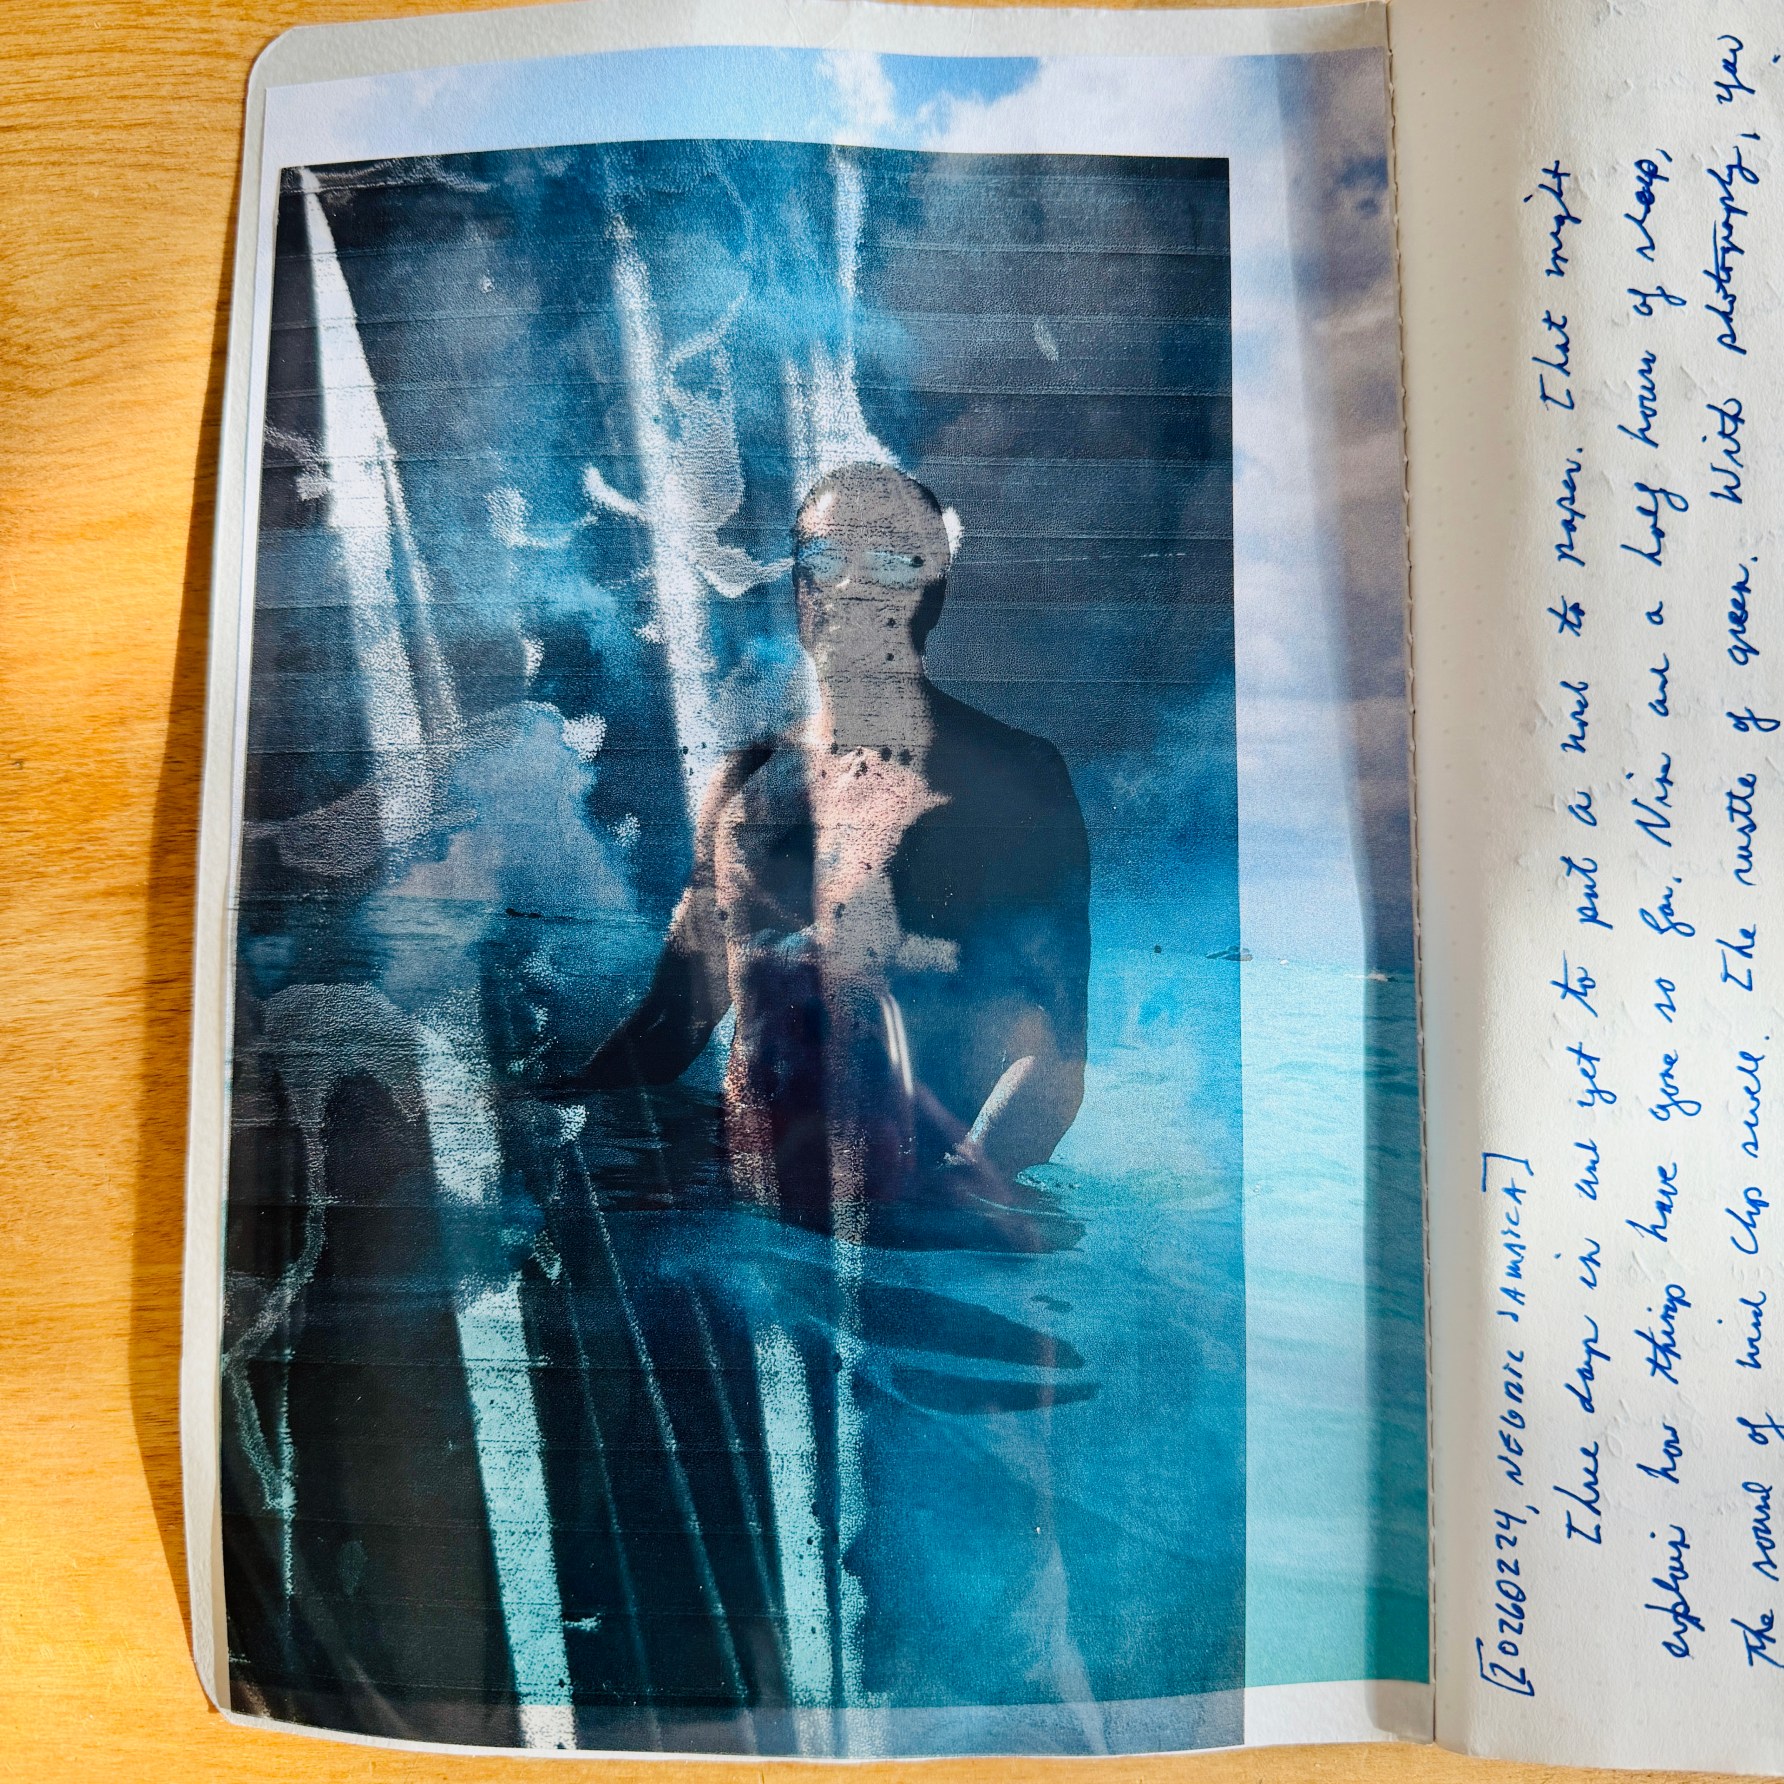 [20260224, NEGRIL JAMAICA]
Three days in and yet to put a word to paper. That might
explain how things have gone so far. Nine and a half hours of sleep,
the sound of wind chip swell. The rustle of green. With photography, you